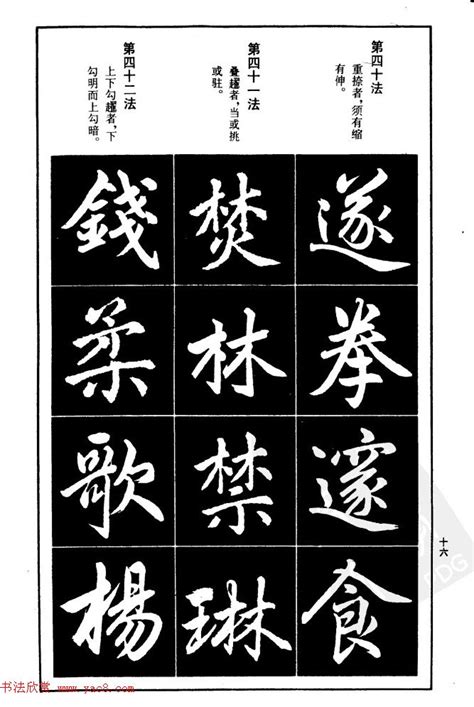 第四十法
重捺者，须有缩
有伸。
遂
拳
邃
食
第四十一法
叠趯者，当或挑
或驻。
焚
林
禁
琳
第四十二法
上下勾趯者，下
勾明而上勾暗。
錢
柔
歌
楊
十六
书法欣赏 www.yac8.com